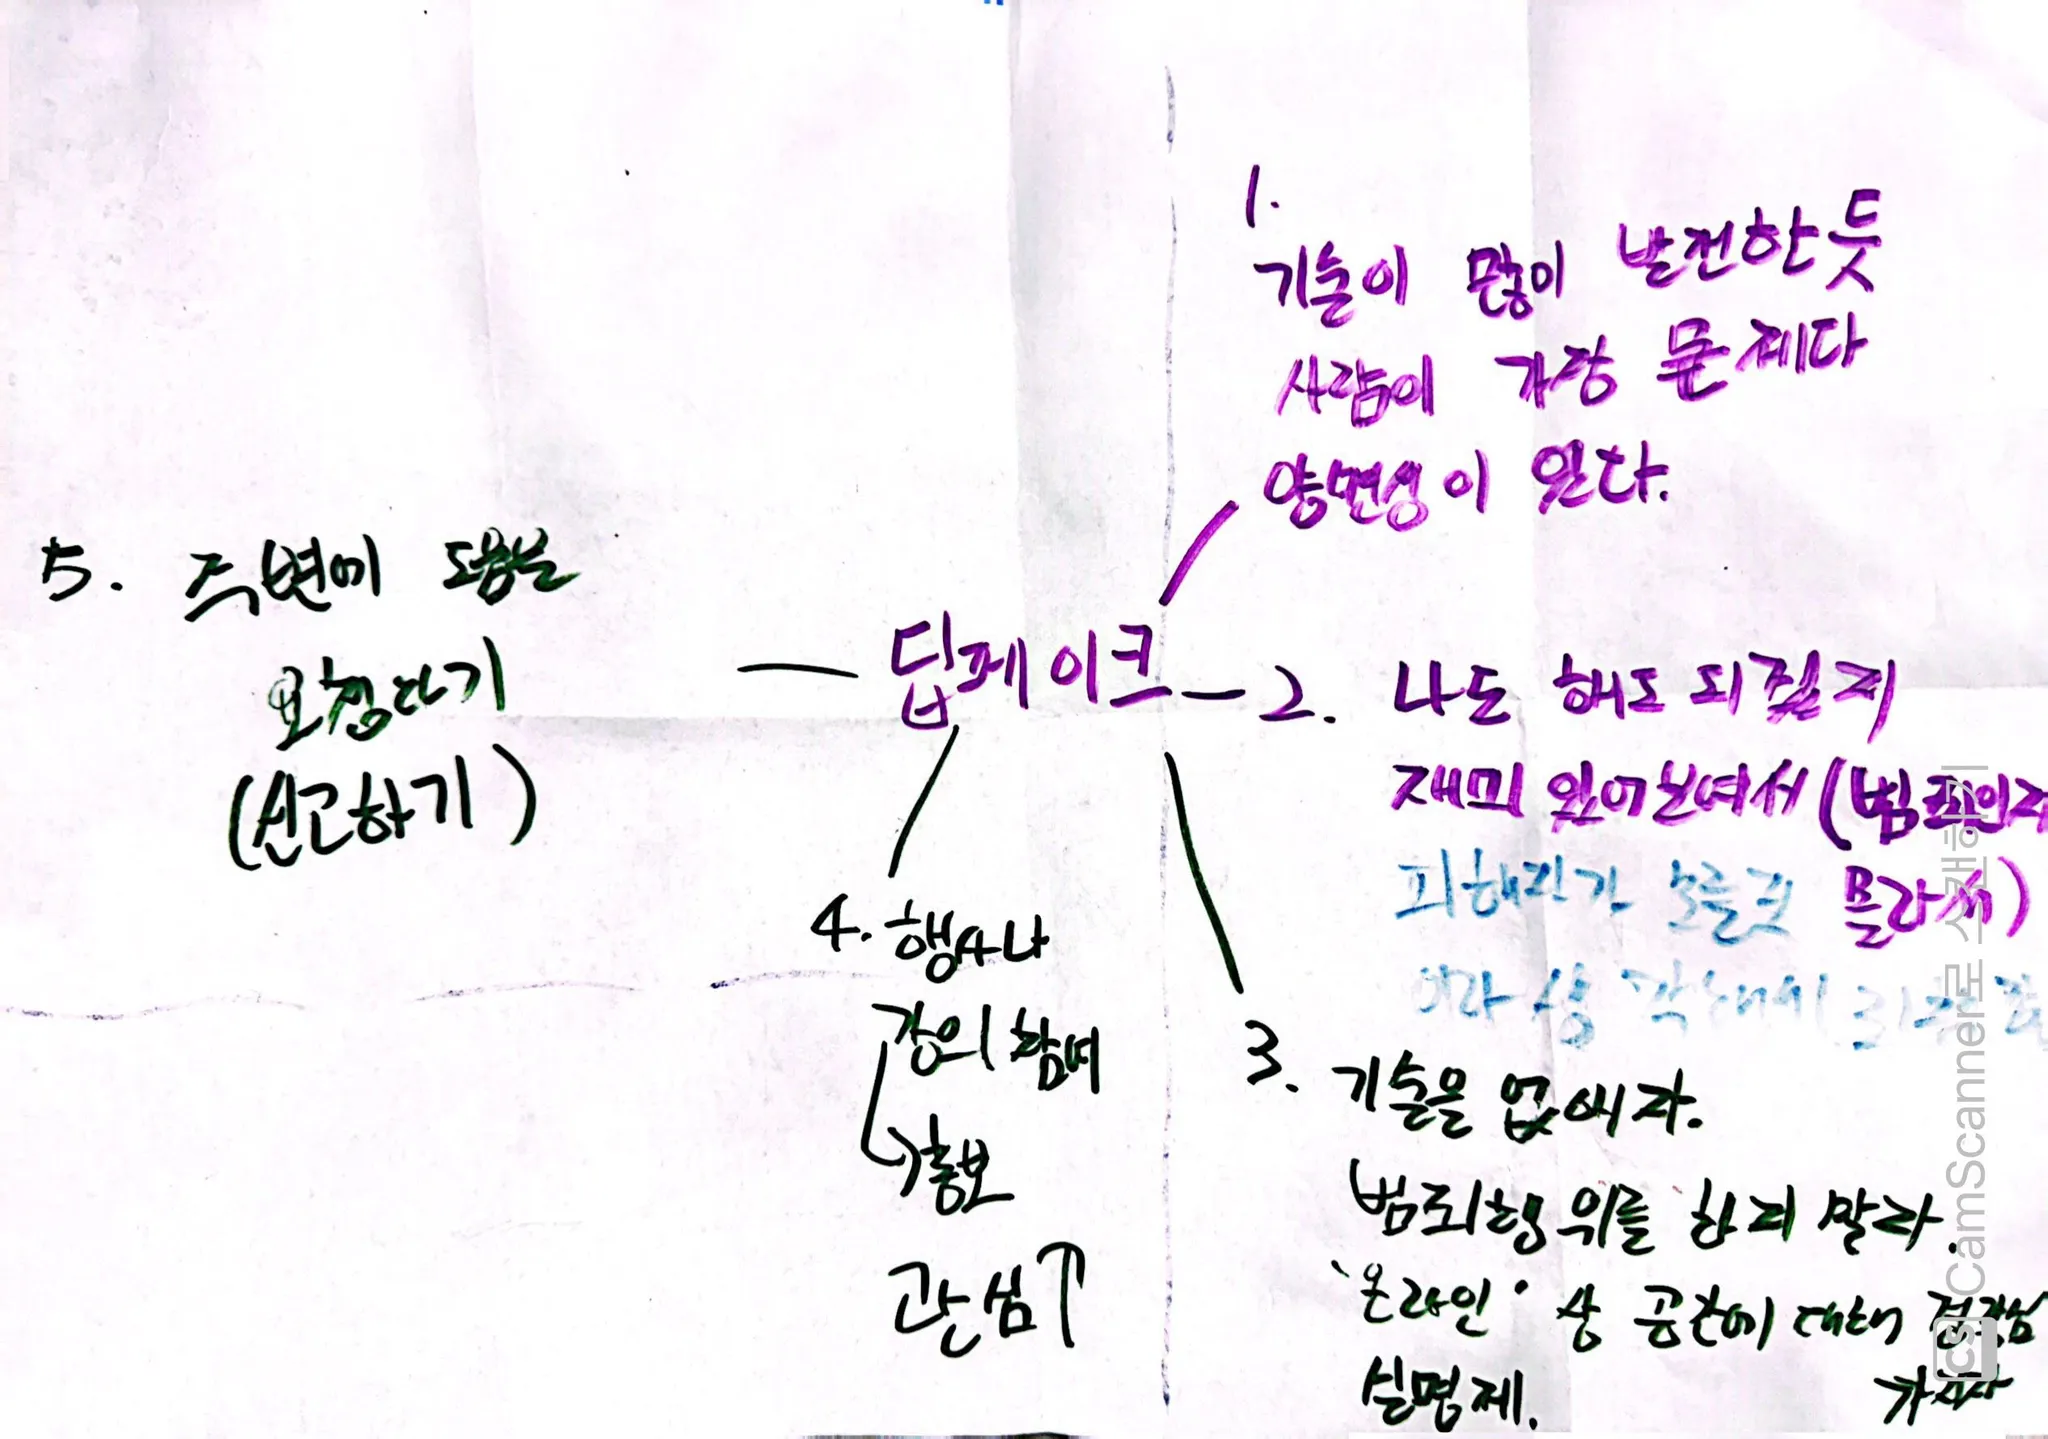 딥페이크
1.
기술이 많이 발전한듯
사람이 가장 문제다
양면성이 있다.
2. 나도 해도 되겠지
재미 있어보여서 (범죄인지
피해자가 모를것 몰라서)
이라 생각해서
3. 기술을 없애자.
범죄행위를 하지 말라.
'온라인' 상 공간에 대해 경각심
실명제. 가지자
4. 행사나
강의 참여
홍보
관심↑
5. 주변에 도움을
요청하기
(신고하기)
CamScanner로 스캔하기
CS